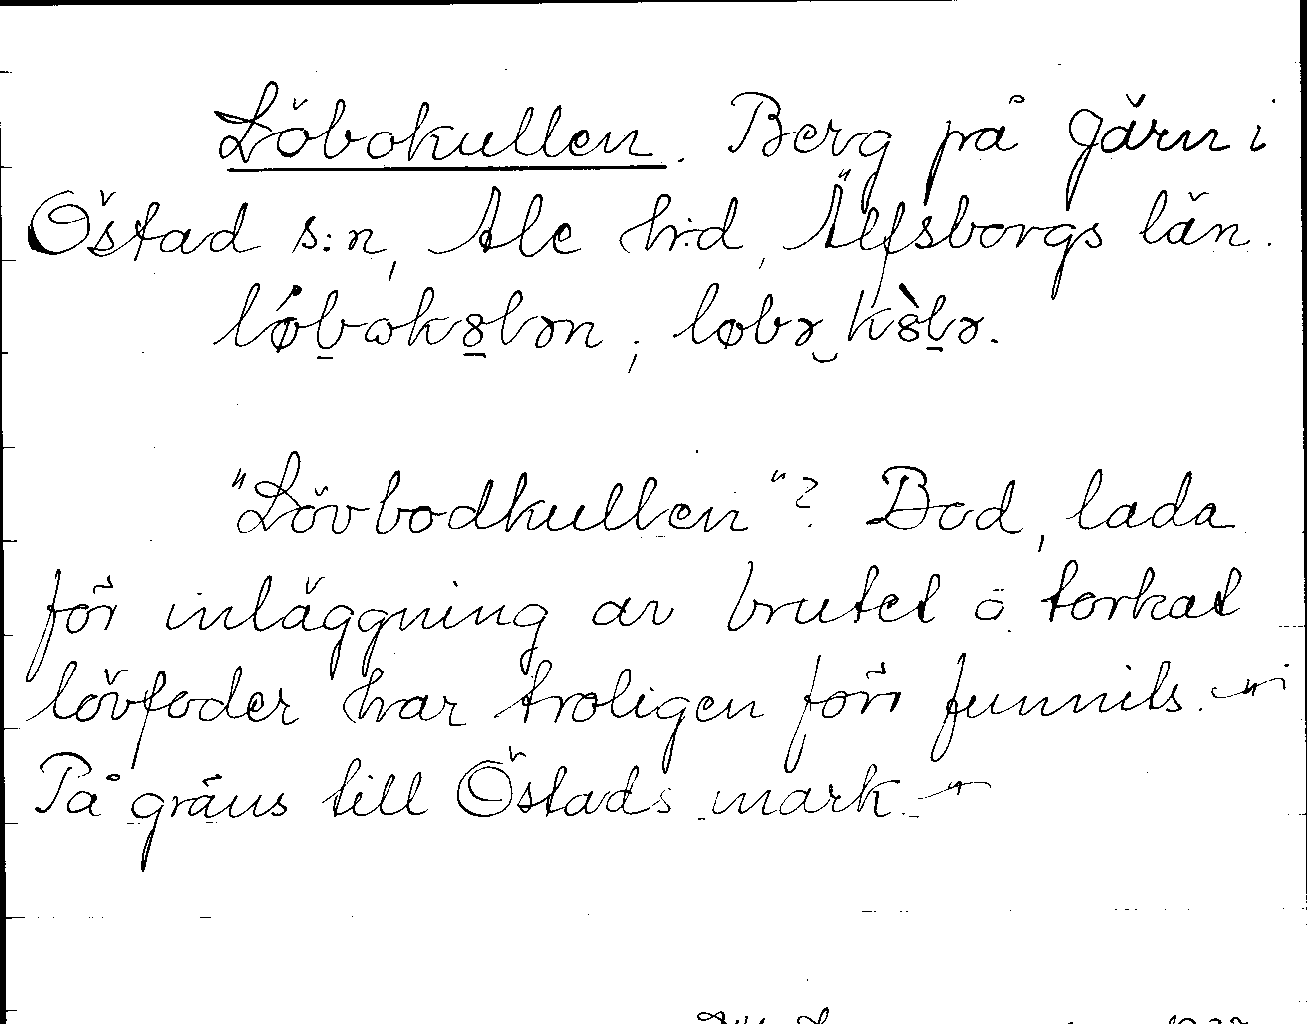 Löbokullen. Berg på Järn i
Östad s:n, Ale h:d, Älfsborgs län.
"Lövbodkullen"? Bod, lada
för inläggning av brutet o torkat
lövfoder har troligen förr funnits.
På gräns till Östads mark